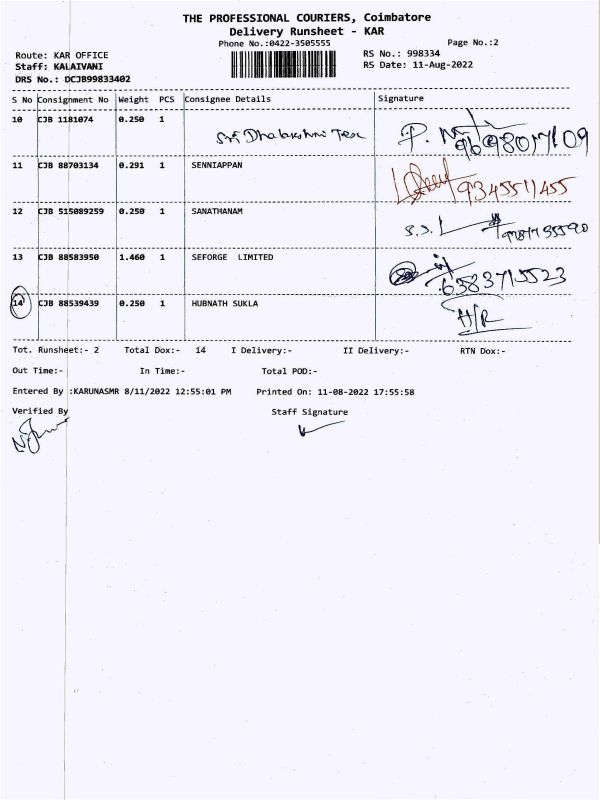 THE PROFESSIONAL COURIERS, Coimbatore
Delivery Runsheet - KAR
Phone No.:0422-3505555 Page No.:2
Route: KAR OFFICE RS No.: 998334
Staff: KALAIVANI RS Date: 11-Aug-2022
DRS No.: DCJB99833402
S No Consignment No Weight PCS Consignee Details Signature
10 CJB 1181074 0.250 1 Sri Dhalakshmi Tex
11 CJB 88703134 0.291 1 SENNIAPPAN 9345511455
12 CJB 515089259 0.250 1 SANATHANAM S.S.
13 CJB 88583950 1.460 1 SEFORGE LIMITED 6383715523
14 CJB 88539439 0.250 1 HUBNATH SUKLA H/R
Tot. Runsheet:- 2 Total Dox:- 14 I Delivery:- II Delivery:- RTN Dox:-
Out Time:- In Time:- Total POD:-
Entered By :KARUNASMR 8/11/2022 12:55:01 PM Printed On: 11-08-2022 17:55:58
Verified By Staff Signature